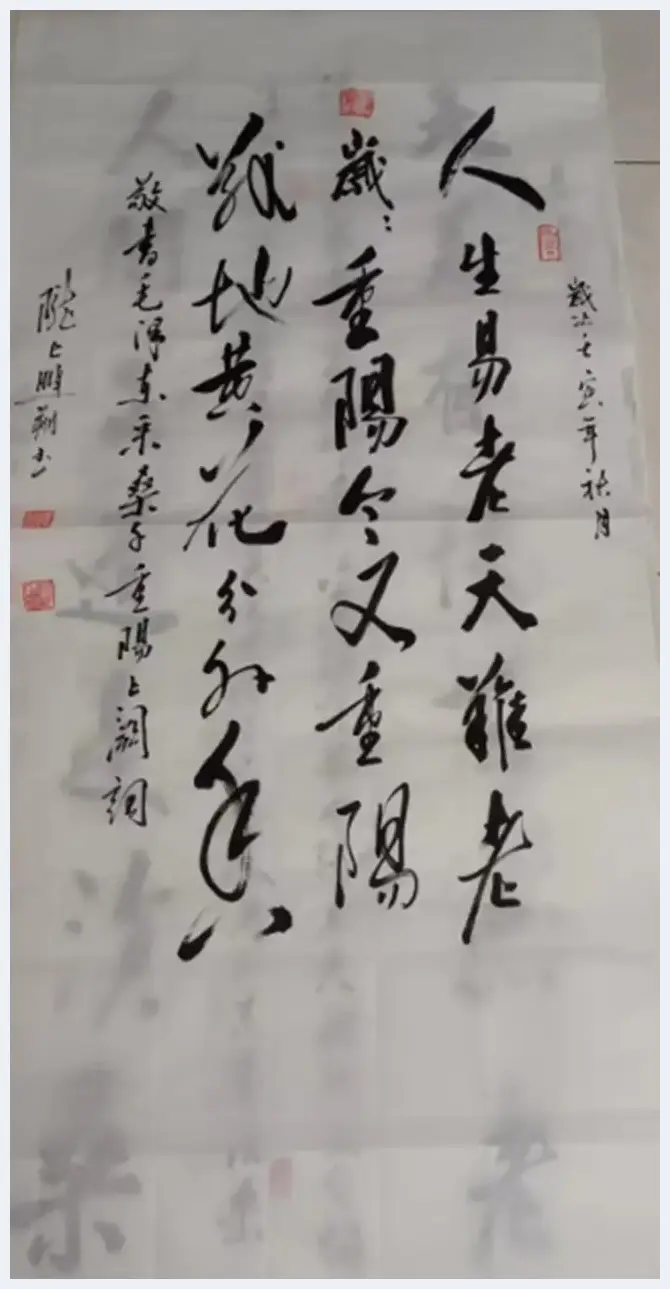 歲次壬寅年秋月
人生易老天難老
歲〻重陽今又重陽
戰地黃花分外香
敬書毛澤東采桑子重陽上闋詞
隴上鵬翔書